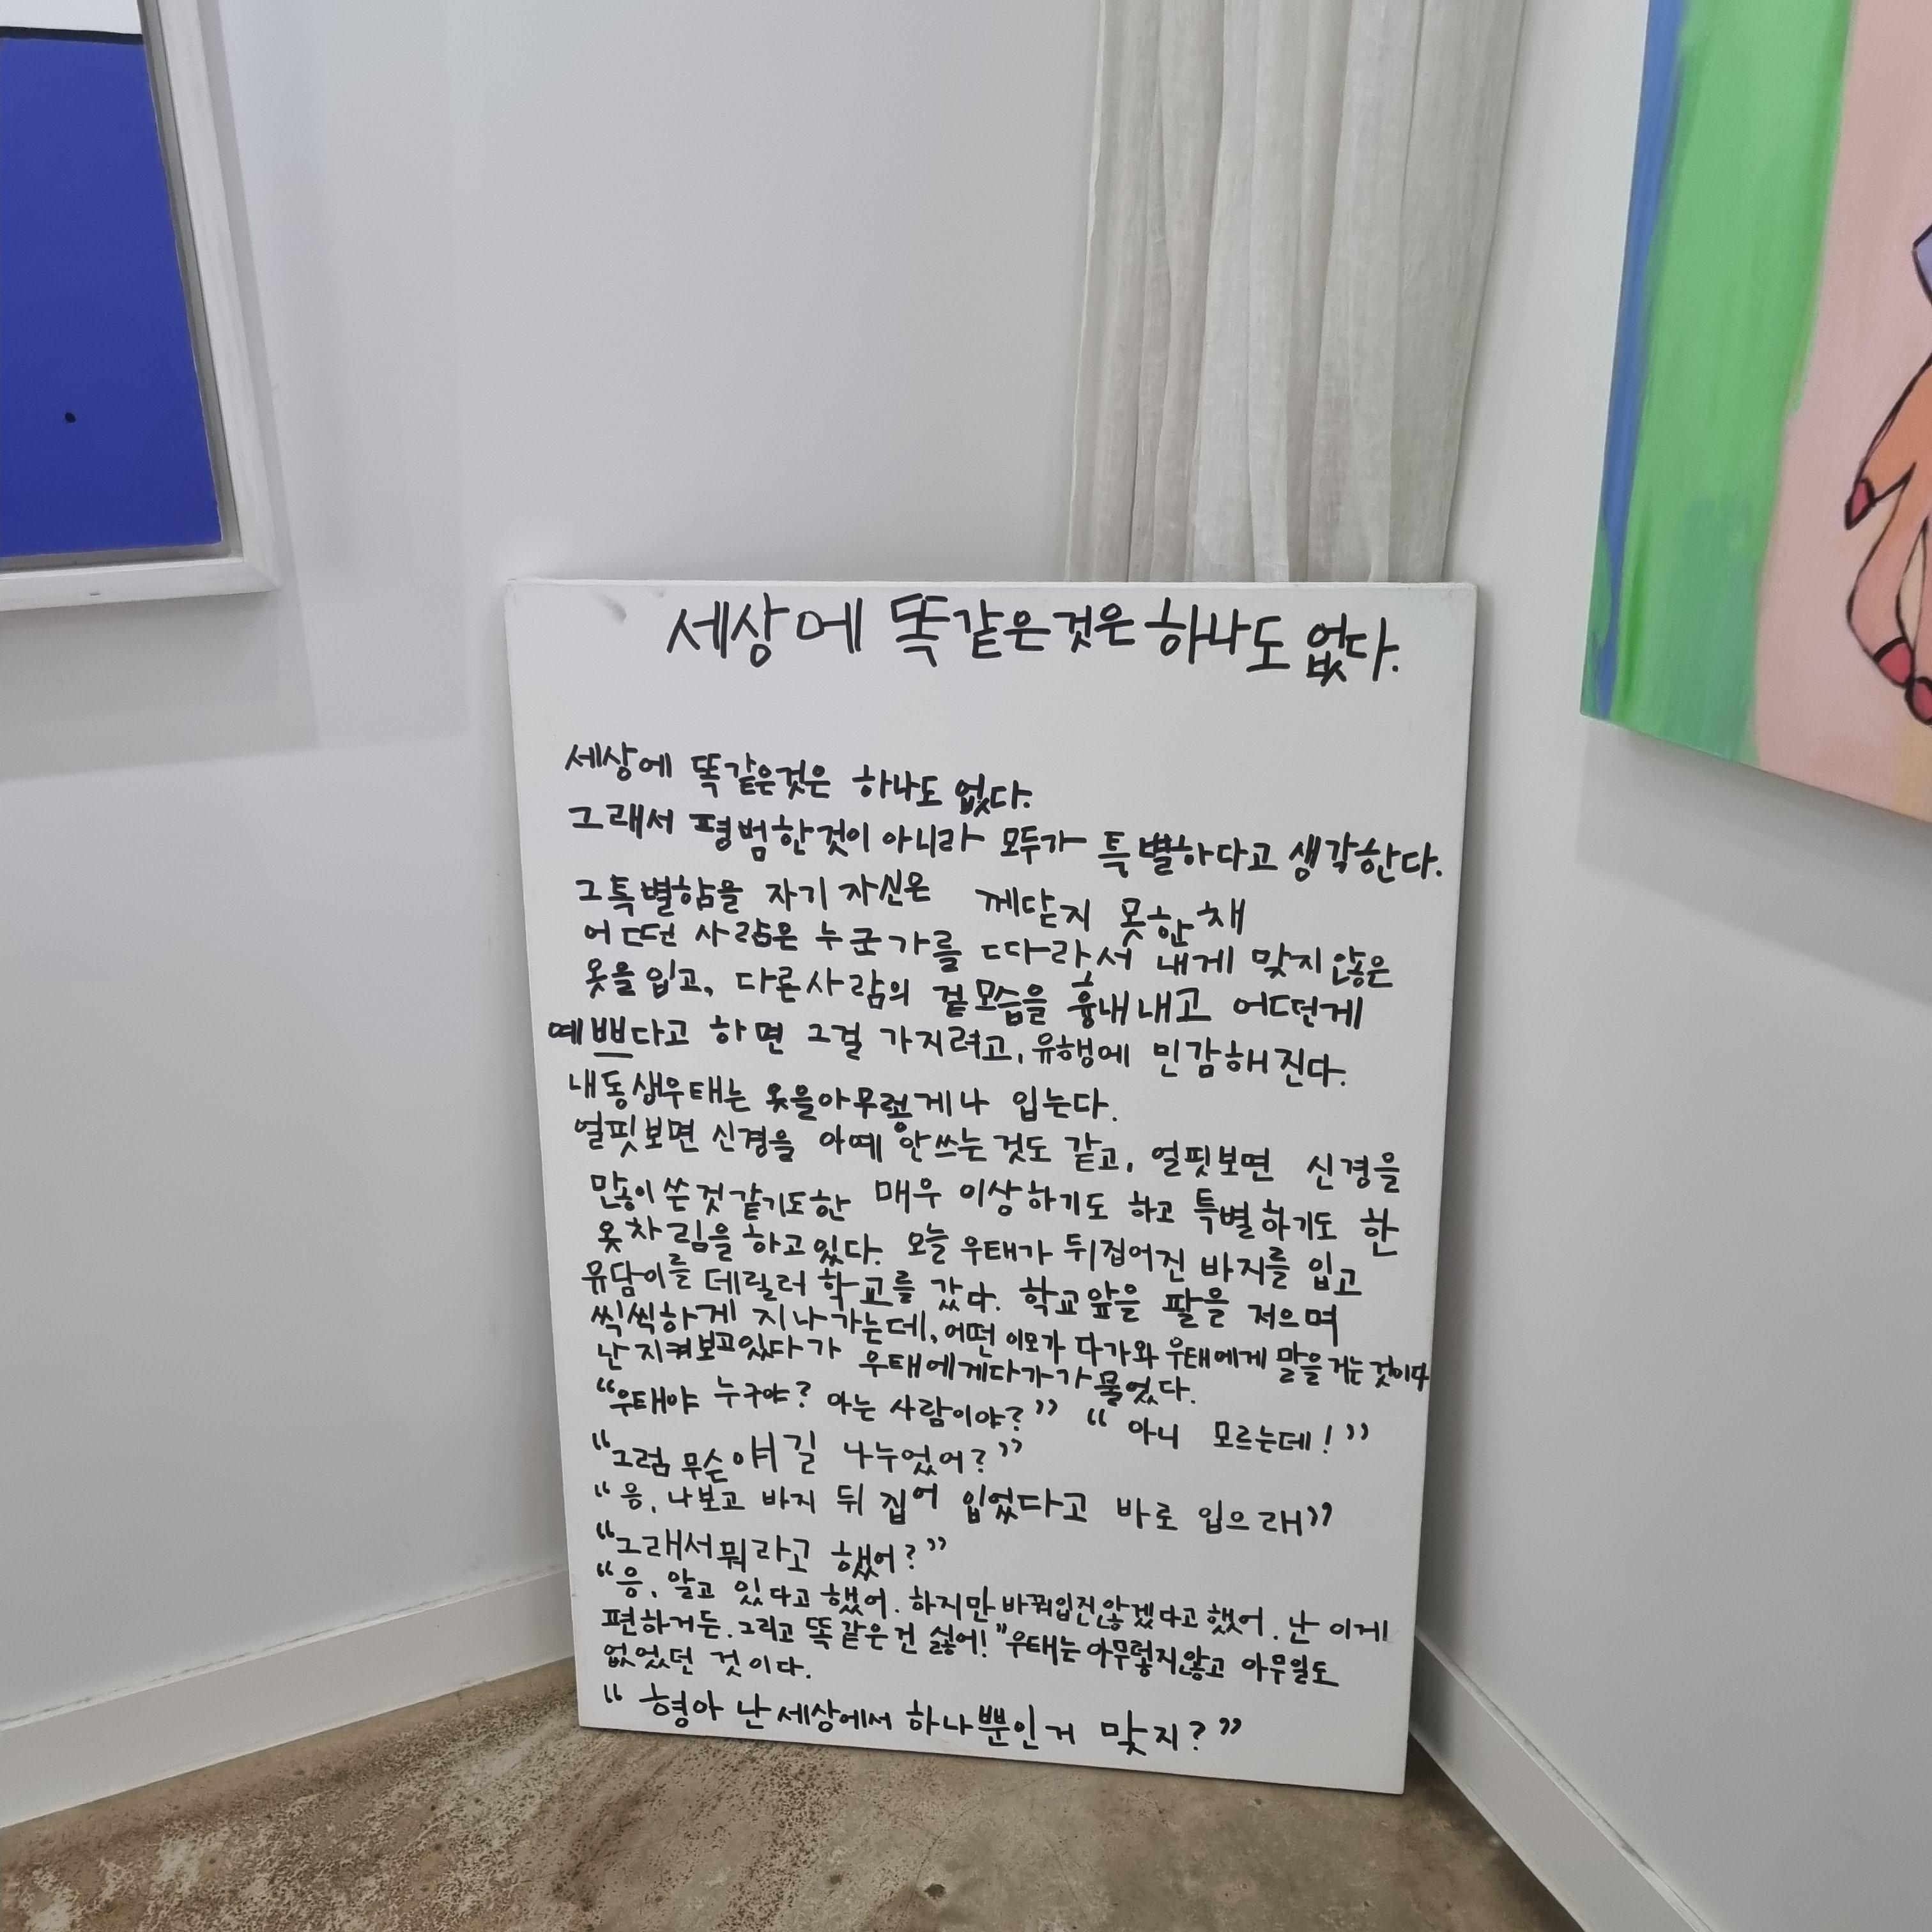 세상에 똑같은것은 하나도 없다.
세상에 똑같은것은 하나도 없다.
그래서 평범한것이 아니라 모두가 특별하다고 생각한다.
그특별함을 자기 자신은 께닫지 못한채
어떠떤 사람은 누군가를 따라서 내게 맞지않은
옷을입고, 다른사람의 겉모습을 흉내내고 어떠떤게
예쁘다고 하면 그걸 가지려고, 유행에 민감해진다.
내동생우태는 옷을아무렇게나 입는다.
얼핏보면 신경을 아예 안쓰는것도 같고, 얼핏보면 신경을
많이 쓴것같기도한 매우 이상하기도 하고 특별하기도 한
옷차림을 하고있다. 오늘 우태가 뒤집어진 바지를 입고
유담이를 데릴러 학교를 갔다. 학교앞을 팔을 저으며
씩씩하게 지나가는데, 어떤 이모가 다가와 우태에게 말을 거는 것이다
난 지켜보고있다가 우태에게다가가 물었다.
“우태야 누구야? 아는 사람이야?” “아니 모르는데!”
“그럼 무슨 얘길 나누었어?”
“응, 나보고 바지 뒤집어 입었다고 바로 입으래”
“그래서뭐라고 했어?”
“응, 알고 있다고 했어. 하지만 바꿔입진않겠다고했어. 난 이게
편하거든. 그리고 똑같은건 싫어!” 우태는 아무렇지않고 아무일도
없었던 것이다.
“형아 난 세상에서 하나뿐인거 맞지?”